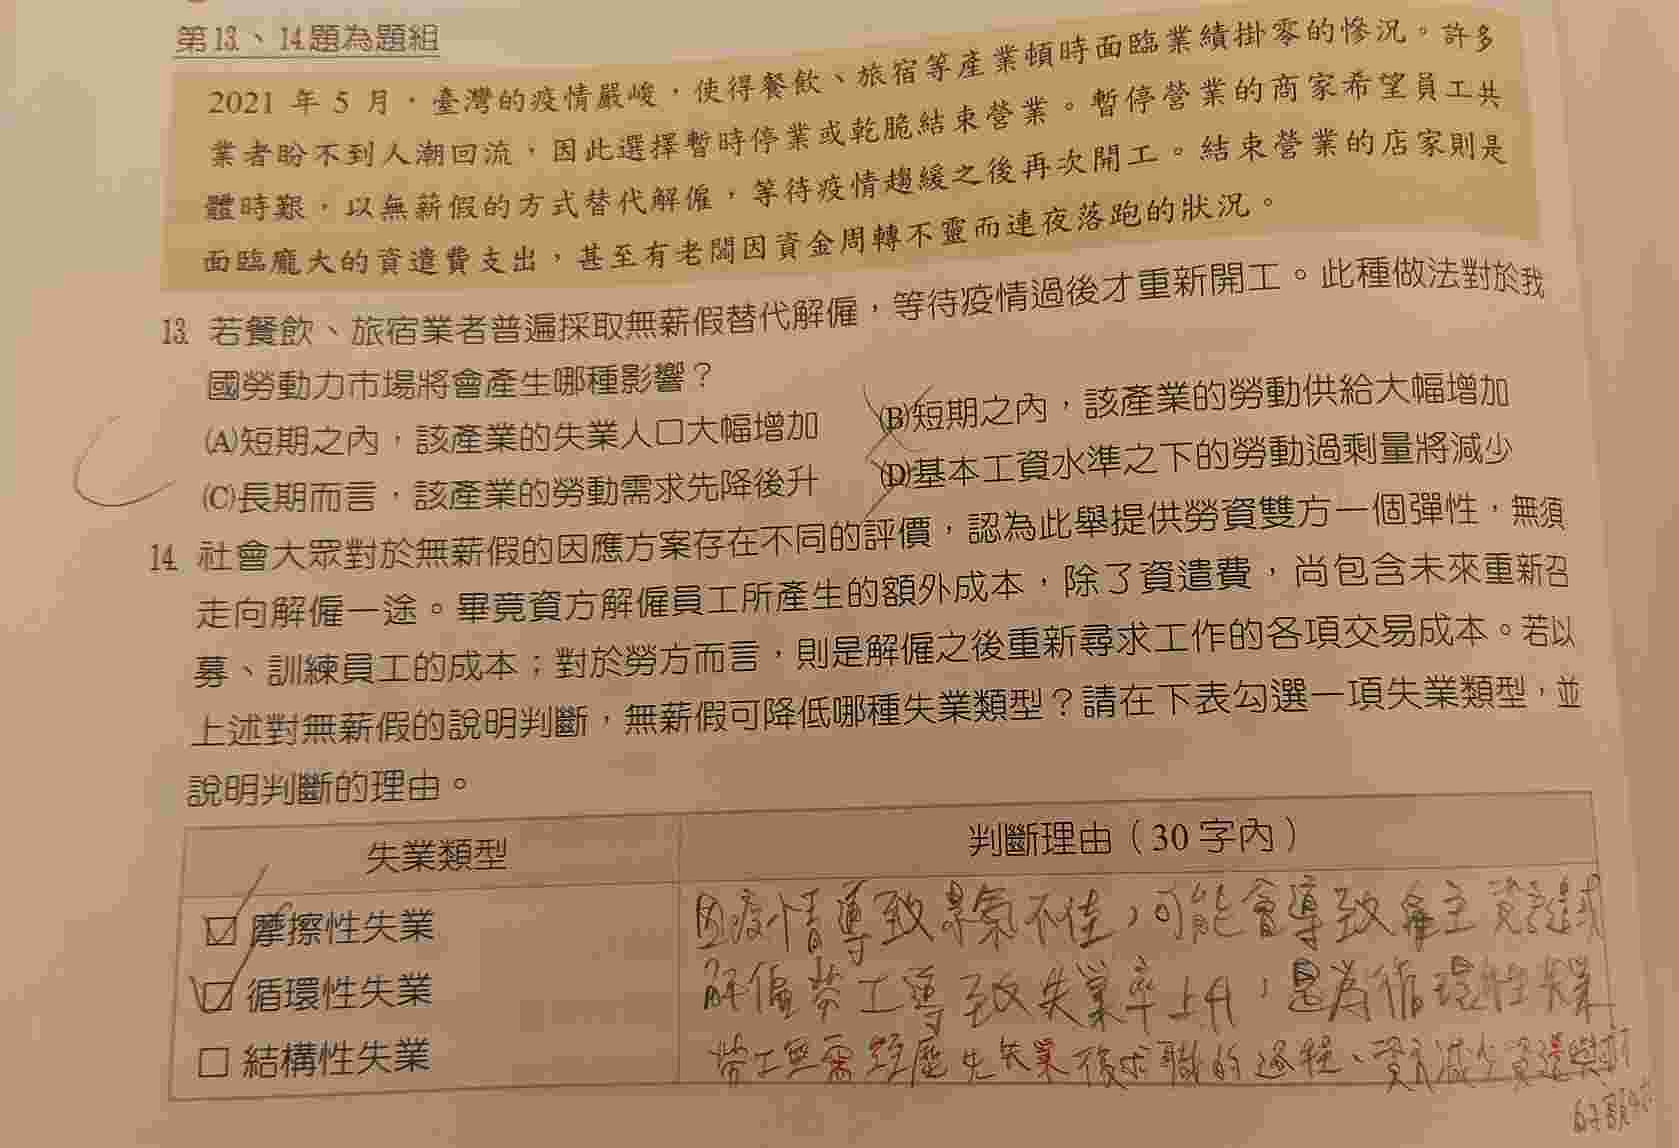 第13、14題為題組
2021 年 5 月，臺灣的疫情嚴峻，使得餐飲、旅宿等產業頓時面臨業績掛零的慘況。許多
業者盼不到人潮回流，因此選擇暫時停業或乾脆結束營業。暫停營業的商家希望員工共
體時艱，以無薪假的方式替代解僱，等待疫情趨緩之後再次開工。結束營業的店家則是
面臨龐大的資遣費支出，甚至有老闆因資金周轉不靈而連夜落跑的狀況。
13. 若餐飲、旅宿業者普遍採取無薪假替代解僱，等待疫情過後才重新開工。此種做法對於我
國勞動力市場將會產生哪種影響？
(A)短期之內，該產業的失業人口大幅增加 (B)短期之內，該產業的勞動供給大幅增加
(C)長期而言，該產業的勞動需求先降後升 (D)基本工資水準之下的勞動過剩量將減少
14. 社會大眾對於無薪假的因應方案存在不同的評價，認為此舉提供勞資雙方一個彈性，無須
走向解僱一途。畢竟資方解僱員工所產生的額外成本，除了資遣費，尚包含未來重新召
募、訓練員工的成本；對於勞方而言，則是解僱之後重新尋求工作的各項交易成本。若以
上述對無薪假的說明判斷，無薪假可降低哪種失業類型？請在下表勾選一項失業類型，並
說明判斷的理由。
失業類型 判斷理由（30 字內）
☑ 摩擦性失業 因疫情導致景氣不佳，可能會導致雇主資遣或
☑ 循環性失業 解僱勞工導致失業率上升，是為循環性失業
□ 結構性失業 勞工無需經歷先失業後求職的過程、資方減少資遣與
的額外